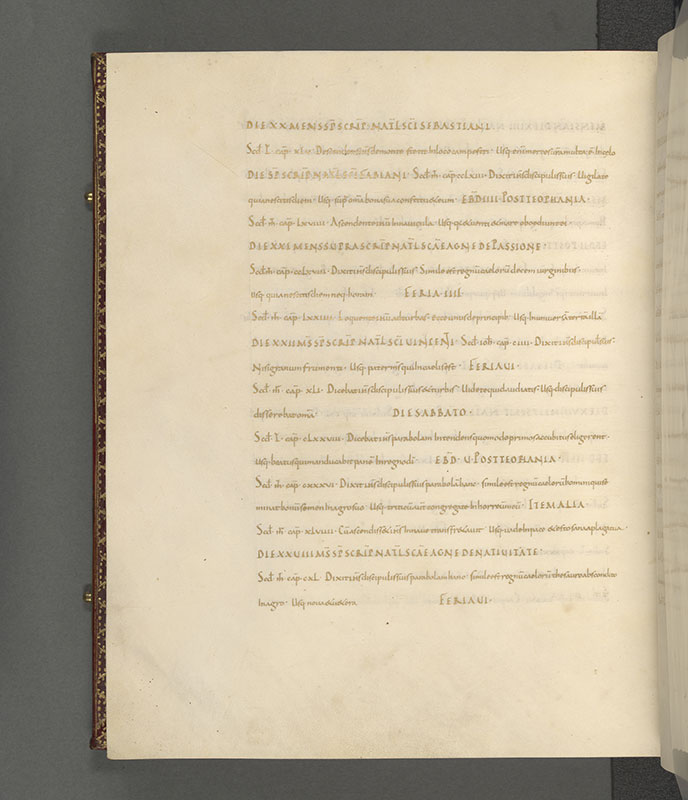 DIE XX MENS S̅P̅ SCRIP̅ NAT̅L SC̅I SEBASTIANI
Scd̅ L cap̅ XLV Descendens ih̅s demonte stetit In loco campestri Usq; enim erros curamulta e̅ In celo
DIE S̅P̅ SCRIP̅ NAT̅L SC̅I FABIANI Scd̅ m̅ cap̅ CCLXIII Dixit ih̅s discipulis suis Uigilate
quia nescitis diem Usq; sup̅ om̅a bona sua constituet eum EBD̅ IIII POST TEOPHANIA
Scd̅ m̅ cap̅ LXVIIII Ascendente ih̅u In nauicula Usq; quia uenti et mare oboediunt ei
DIE XXI MENS SUPRASCRIP̅ NAT̅L SC̅AE AGNE DE PASSIONE
Scd̅ m̅ cap̅ CCLXVIII Dixit ih̅s discipulis suis Simile est regnu̅ caeloru̅ decem uirginibus
usq; quia nescitis diem neq; horam FERIA IIII
Scd̅ m̅ cap̅ LXXIIII Loquente ih̅u ad turbas ecce unus de principib; Usq; In uniuersa̅ terra̅ illa̅
DIE XXII M̅S S̅P̅ SCRIP̅ NAT̅L SC̅I UINCENTI Scd̅ ioh̅ cap̅ CIIII Dixit ih̅s discipulis suis
Nisi granum frumenti Usq; pater m̅s qui In caelis est FERIA UI
Scd̅ m̅ cap̅ XLI Dicebat ih̅s discipulis suis et turbis Uidete quid audiatis Usq; discipulis suis
disserebat om̅a DIE SABBATO
Scd̅ L cap̅ CLXXVIII Dicebat ih̅s parabolam Intendens quomodo primos accubitus eligerent
Usq; beatus qui manducabit pane̅ In regno di̅ EBD̅ U POST TEOPHANIA
Scd̅ m̅ cap̅ CXXXVI Dixit ih̅s discipulis suis parabola̅ hanc simile est regnu̅ caeloru̅ homini qui se
minat bonu̅ semen In agro suo Usq; triticu̅ aut̅ congregate In horreu̅ meu̅ ITEM ALIA
Scd̅ m̅ cap̅ XLVIIII Cu̅ ascendisset ih̅s In naui transfretauit Usq; uade In pace et esto sana a plaga tua
DIE XXUIII M̅S S̅P̅ SCRIP̅ NAT̅L SC̅AE AGNE DE NATIUITATE
Scd̅ m̅ cap̅ CXL Dixit ih̅s discipulis suis parabolam hanc simile est regnu̅ caeloru̅ thesauro abscondito
In agro Usq; noua et uetera FERIA UI